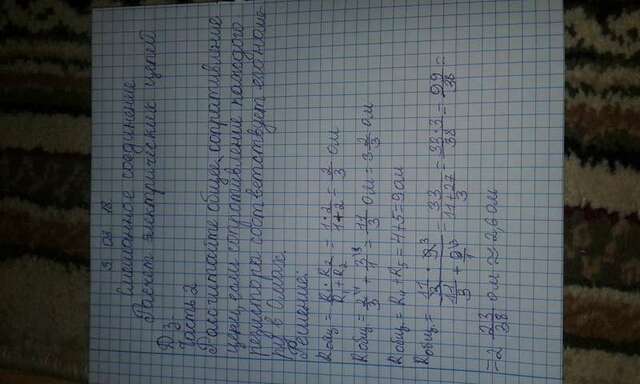 9 03 18
Смешанное соединение
Расчёт электрических цепей
Д.З.
Часть 2
Рассчитайте общее сопротивление
цепи, если сопротивление каждого
резистора соответствует его номе-
ру в Омах.
Решение:
Rобщ = R₁·R₂/R₁+R₂ = 1·2/1+2 = 2/3 Ом
Rобщ = 2/3 + 3/1 = 11/3 Ом = 3 2/3 Ом
Rобщ = R₄ + R₅ = 4+5=9 Ом
Rобщ = 11/3 · 9/11/3 + 9/1 = 33/11+27/3 = 33·3/38 = 99/38 =
=2 23/38 Ом ≈ 2,6 Ом